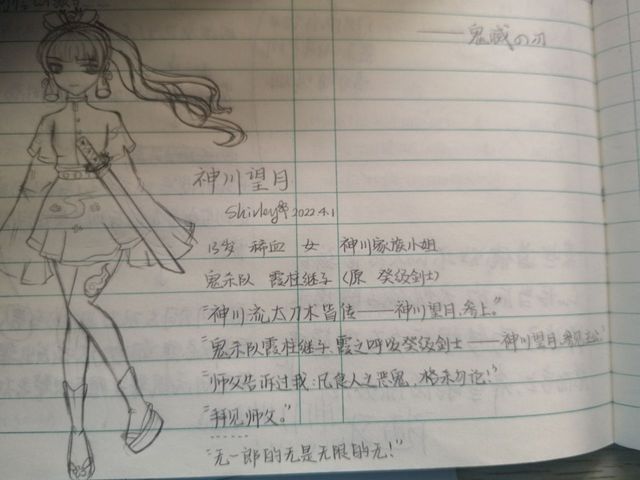 ——鬼灭の刃
神川望月
Shirley 2022.4.1
13岁 稀血 女 神川家族小姐
鬼杀队 霞柱继子(原 癸级剑士)
"神川流太刀术皆传——神川望月,参上。"
"鬼杀队霞柱继子,霞之呼吸癸级剑士——神川望月,参见主公"
"师父告诉过我:凡食人之恶鬼,格杀勿论!"
"拜见师父。"
"无一郎的无是无限的无!"